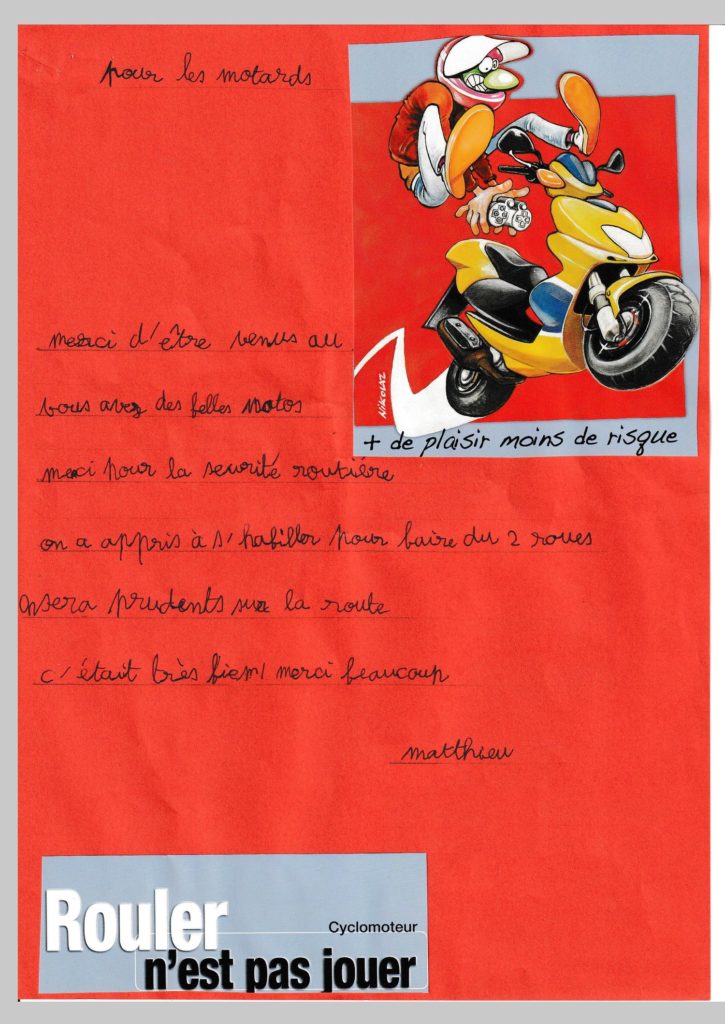 pour les motards
NIKOLAZ
merci d'être venus au
vous avez des belles motos
+ de plaisir moins de risque
merci pour la securité routière
on a appris à s'habiller pour faire du 2 roues
on sera prudents sur la route
c'était très bien! merci beaucoup
matthieu
Rouler
Cyclomoteur
n'est pas jouer